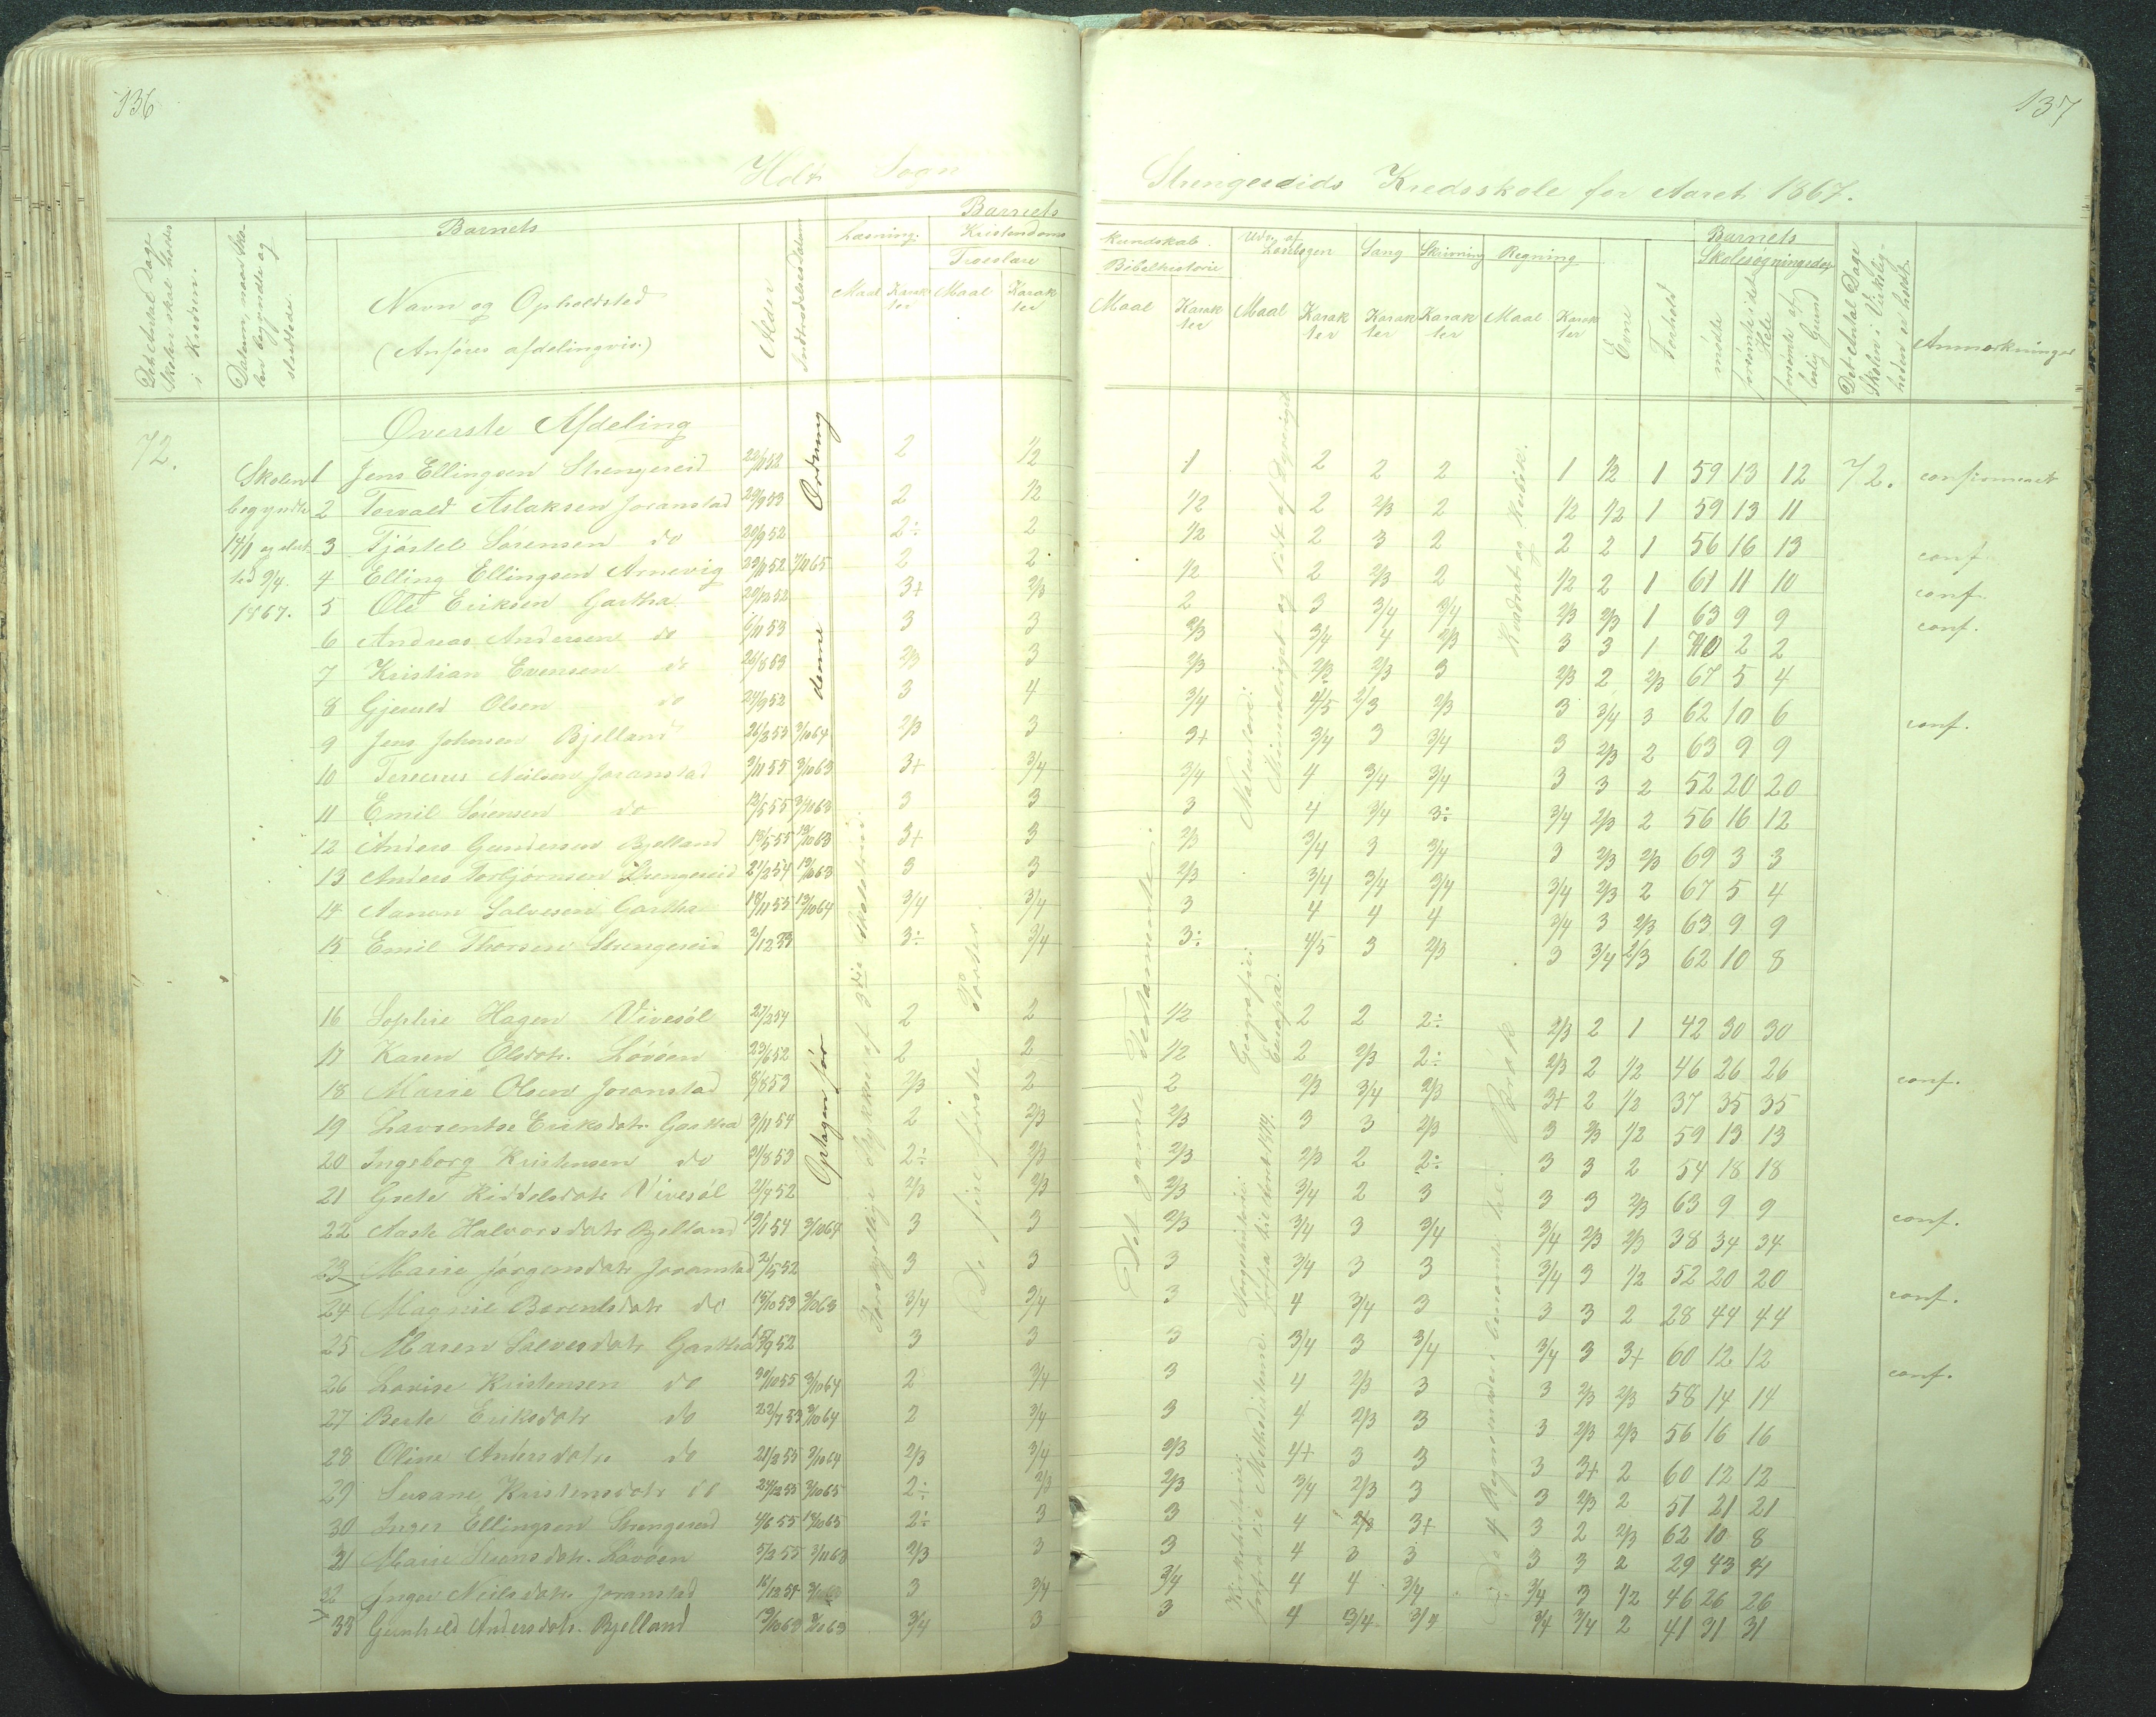 136
137
Holt Sogn
Strengereids Kredsskole for Aaret 1867.
Det Antal Dage Skolen skal holdes i Kredsen.
Datum, naar Skolen begyndte og sluttede.
Barnets
Navn og Opholdsted
(Anføres afdelingvis.)
Alder
Indtrædelsesdatum
Barnets
Læsning.
Maal
Karakter
Kristendoms
Troeslære
Maal
Karakter
kundskab.
Bibelhistorie
Maal
Karakter
Udv. af Læsebogen
Maal
Karakter
Sang
Karakter
Skrivning
Karakter
Regning
Maal
Karakter
Evne
Forhold
Barnets
Skolesøgningsdage
mødte
forsømte i det Hele
forsømte af lovlig Grund
Det Antal Dage Skolen i Virkeligheden er holdt.
Anmærkninger
Øverste Afdeling
72.
Skolen begyndte 14/1 og slutted 9/4. 1867.
1 Jens Ellingsen Strengereid 22/11 52 2 1/2 1 2 2 2 1 1/2 1 59 13 12 72. confirmeret
2 Torvald Aslaksen Joranstad 29/9 53 2 1/2 1/2 2 2/3 2 1/2 1/2 1 59 13 11
3 Tjøstel Sørensen do 20/9 52 2÷ 2 1/2 2 3 2 2 2 1 56 16 13 conf.
4 Elling Ellingsen Arnevig 29/11 52 7/11 65 2 2 1/2 2 2/3 2 1/2 2 1 61 11 10 conf.
5 Ole Eriksen Gartha 29/12 52 3+ 2/3 2 3 3/4 3/4 2/3 2/3 1 63 9 9 conf.
6 Andreas Andersen do 1/11 53 3 3 2/3 3/4 4 2/3 3 3 1 70 2 2
7 Kristian Evensen do 26/8 53 2/3 3 2/3 2/3 2/3 3 2/3 2 2/3 67 5 4
8 Gjeruld Olsen do 24/9 52 3 4 3/4 4/5 2/3 2/3 3 3/4 3 62 10 6 conf.
9 Jens Johnsen Bjelland 26/3 53 3/10 64 2/3 3 3+ 3/4 3 3/4 3 2/3 2 63 9 9
10 Neilsen Joranstad 3/11 55 3/10 63 3+ 3/4 3/4 4 3/4 3/4 3 3 2 52 20 20
11 Emil Sørensen do 12/5 55 3/10 63 3 3 3 4 3/4 3÷ 3/4 2/3 2 56 16 12
12 Anders Gundersen Bjelland 13/5 55 13/10 63 3+ 3 2/3 3/4 3 3/4 3 2/3 2/3 69 3 3
13 Anders Torbjørnsen Strengereid 21/2 54 13/10 63 3 3 2/3 3/4 3/4 3/4 3/4 2/3 2 67 5 4
14 Aanon Salvesen Gartha 18/11 55 13/10 64 3/4 3/4 3 4 4 4 3/4 3 2/3 63 9 9
15 Emil Thorsen Strengereid 2/12 53 3÷ 3/4 3÷ 4/5 3 2/3 3 3/4 2/3 62 10 8
16 Sophie Hagen Vivesøl 27/2 54 2 2 1/2 2 2 2÷ 2/3 2 1 42 30 30
17 Karen Olsdotr. Løvøen 23/6 52 2 2 1/2 2 2/3 2÷ 2/3 2 1/2 46 26 26 conf.
18 Marie Olsen Joranstad 8/8 53 2/3 2 2 2/3 3/4 2/3 3+ 2 1/2 37 35 35
19 Lavrentse Eriksdotr. Gartha 3/11 54 2 2/3 2/3 3 3 2/3 3 2/3 1/2 59 13 13
20 Ingeborg Kristensen do 21/8 53 2÷ 2/3 2/3 2/3 2 2÷ 3 3 2 54 18 18
21 Grete Kiddelsdotr Vivesøl 21/4 52 2/3 2/3 2/3 3/4 2 3 3 3 2/3 63 9 9 conf.
22 Aaste Halvorsdotr Bjelland 13/1 54 3/10 64 3 3 2/3 3/4 3 3/4 3/4 2/3 2/3 38 34 34
23 Marie Jørgensdotr Joranstad 21/5 52 3 3 3 3/4 3 3 3/4 3 1/2 52 20 20 conf.
24 Magnil Berentsdotr do 15/10 53 3/10 63 3/4 3/4 3 4 3/4 3 3 3 2 28 44 44
25 Maren Salvesdotr Gartha 13/9 52 3 3 3 3/4 3 3/4 3/4 3 3+ 60 12 12 conf.
26 Lovise Kristensen do 30/10 55 3/10 64 2 3/4 3 4 2/3 3 3 2/3 2/3 58 14 14
27 Berte Eriksdotr do 22/7 53 3/10 64 2 3/4 3 4 2/3 3 3 2/3 2/3 56 16 16
28 Oline Andersdotr do 21/3 55 3/10 64 2/3 3/4 2/3 4+ 3 3 3 3+ 2 60 12 12
29 Susane Kristensdotr do 24/12 55 3/10 65 2÷ 2/3 2/3 3/4 2/3 3 3 2/3 2 51 21 21
30 Inger Ellingsen Strengereid 4/6 55 13/10 65 2÷ 3 3 4 2/3 3+ 3 2 2/3 62 10 8
31 Marie Løvøen 5/3 55 3/11 63 2/3 3 3 4 3 3 3 3 2 29 43 41
32 Inger Neilsdotr Joranstad 16/12 54 3 3/4 3/4 4 4 3/4 3/4 3 1/2 46 26 26
33 Gunhild Andersdotr. Bjelland 13/10 63 3/4 3 3 4 3/4 3/4 3/4 3/4 2 41 31 31
Optagen før denne Ordning
Forskjellige Stykker af 3die skoletrin.
De fire første Parter.
Det gamle Testamente.
Naturlære:
Mineralriget og lidt af Dyreriget
Geografie: Europa.
Norgeshistorie:
Kirkehistorie:
Kvadrat og Kubik.
Brøk
De 4 Regnemaader i benævnte hele.